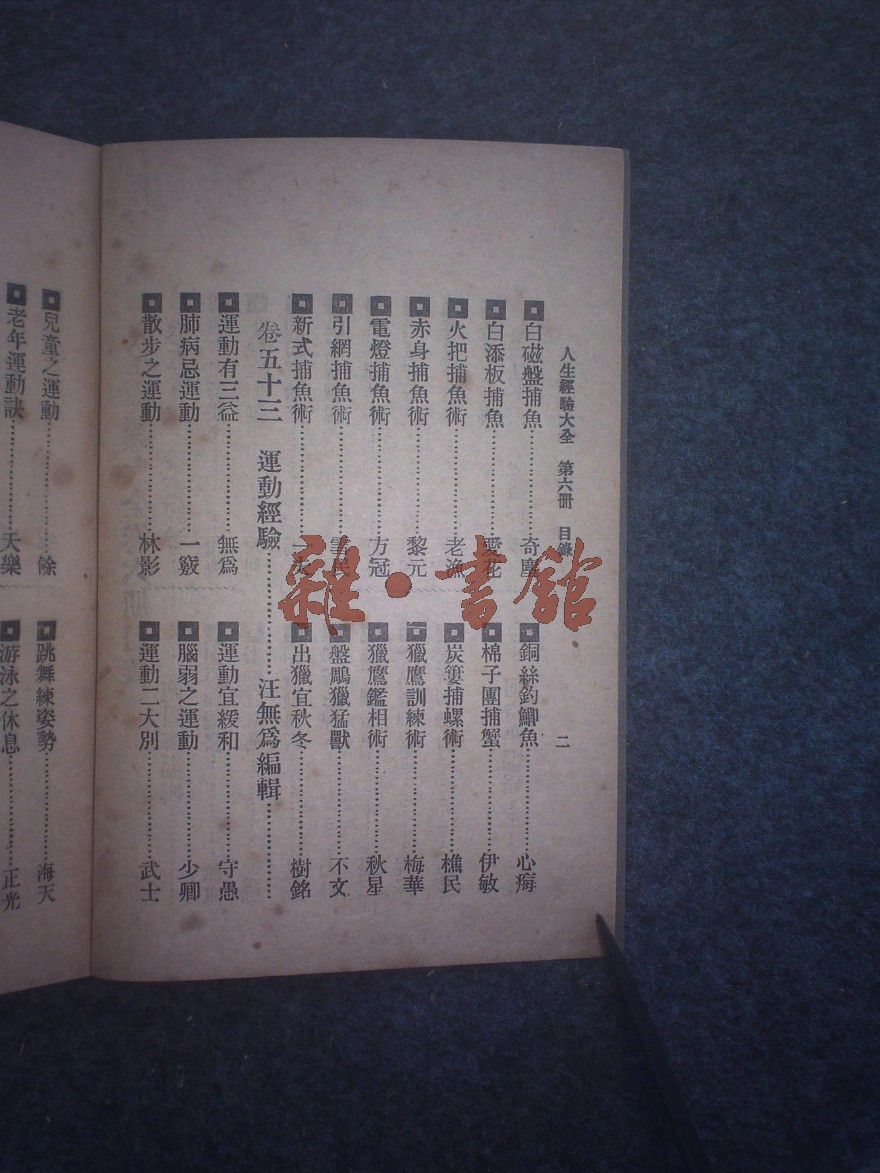 人生經驗大全　第六冊　目錄　二
▣白磁盤捕魚……………奇塵　▣銅絲釣鯽魚……………心痗
▣白添板捕魚……………愛花　▣棉子團捕蟹……………伊敏
▣火把捕魚術……………老漁　▣炭簍捕螺術……………樵民
▣赤身捕魚術……………黎元　▣獵鷹訓練術……………梅華
▣電燈捕魚術……………方冠　▣獵鷹鑑相術……………秋星
▣引網捕魚術……………雪民　▣盤鵰獵猛獸……………不文
▣新式捕魚術……………一夫　▣出獵宜秋冬……………樹銘
卷五十三　運動經驗……………汪無爲編輯……………
▣運動有三益……………無爲　▣運動宜緩和……………守愚
▣肺病忌運動……………一竅　▣腦弱之運動……………少卿
▣散步之運動……………林影　▣運動二大別……………武士
▣兒童之運動……………餘　▣跳舞練姿勢……………海天
▣老年運動訣……………天樂　▣游泳之休息……………正光
雜·書館